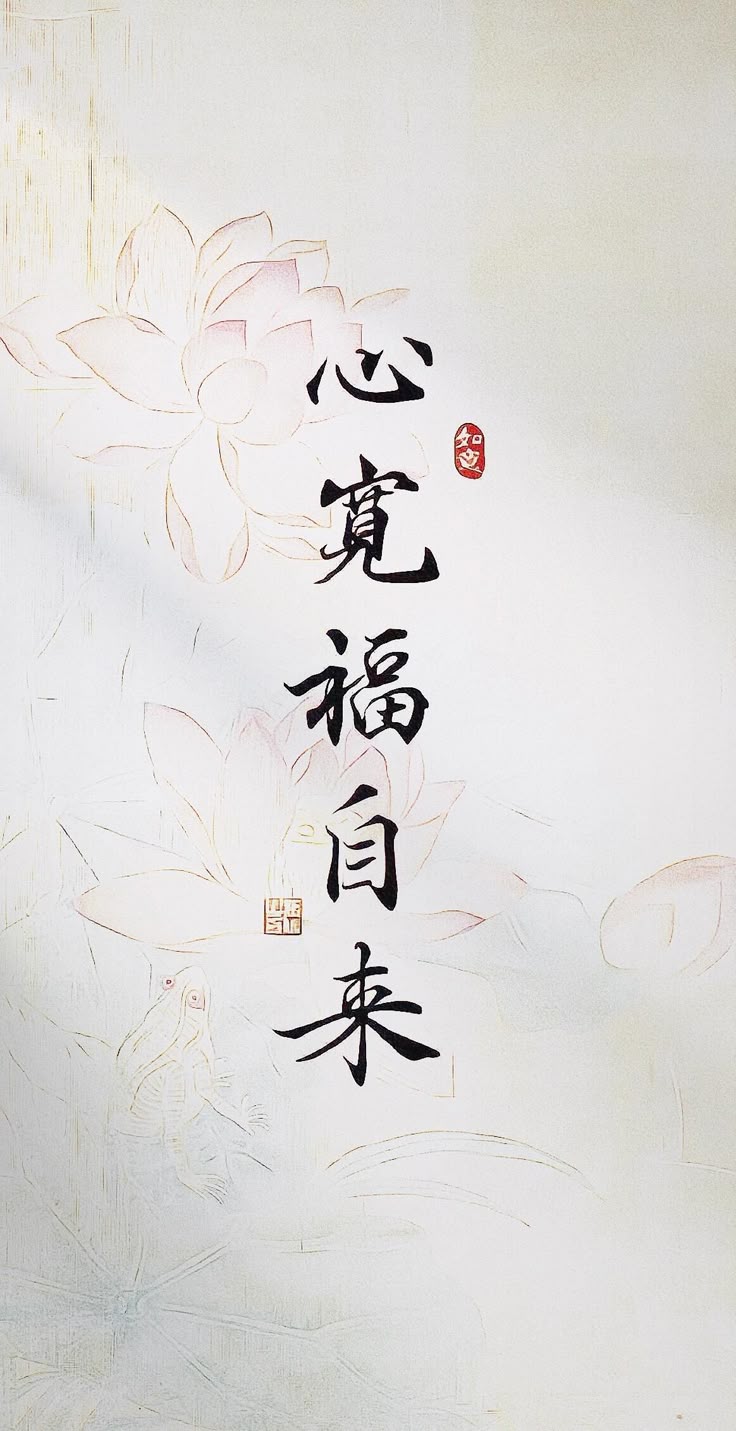 心寬福自来
如意